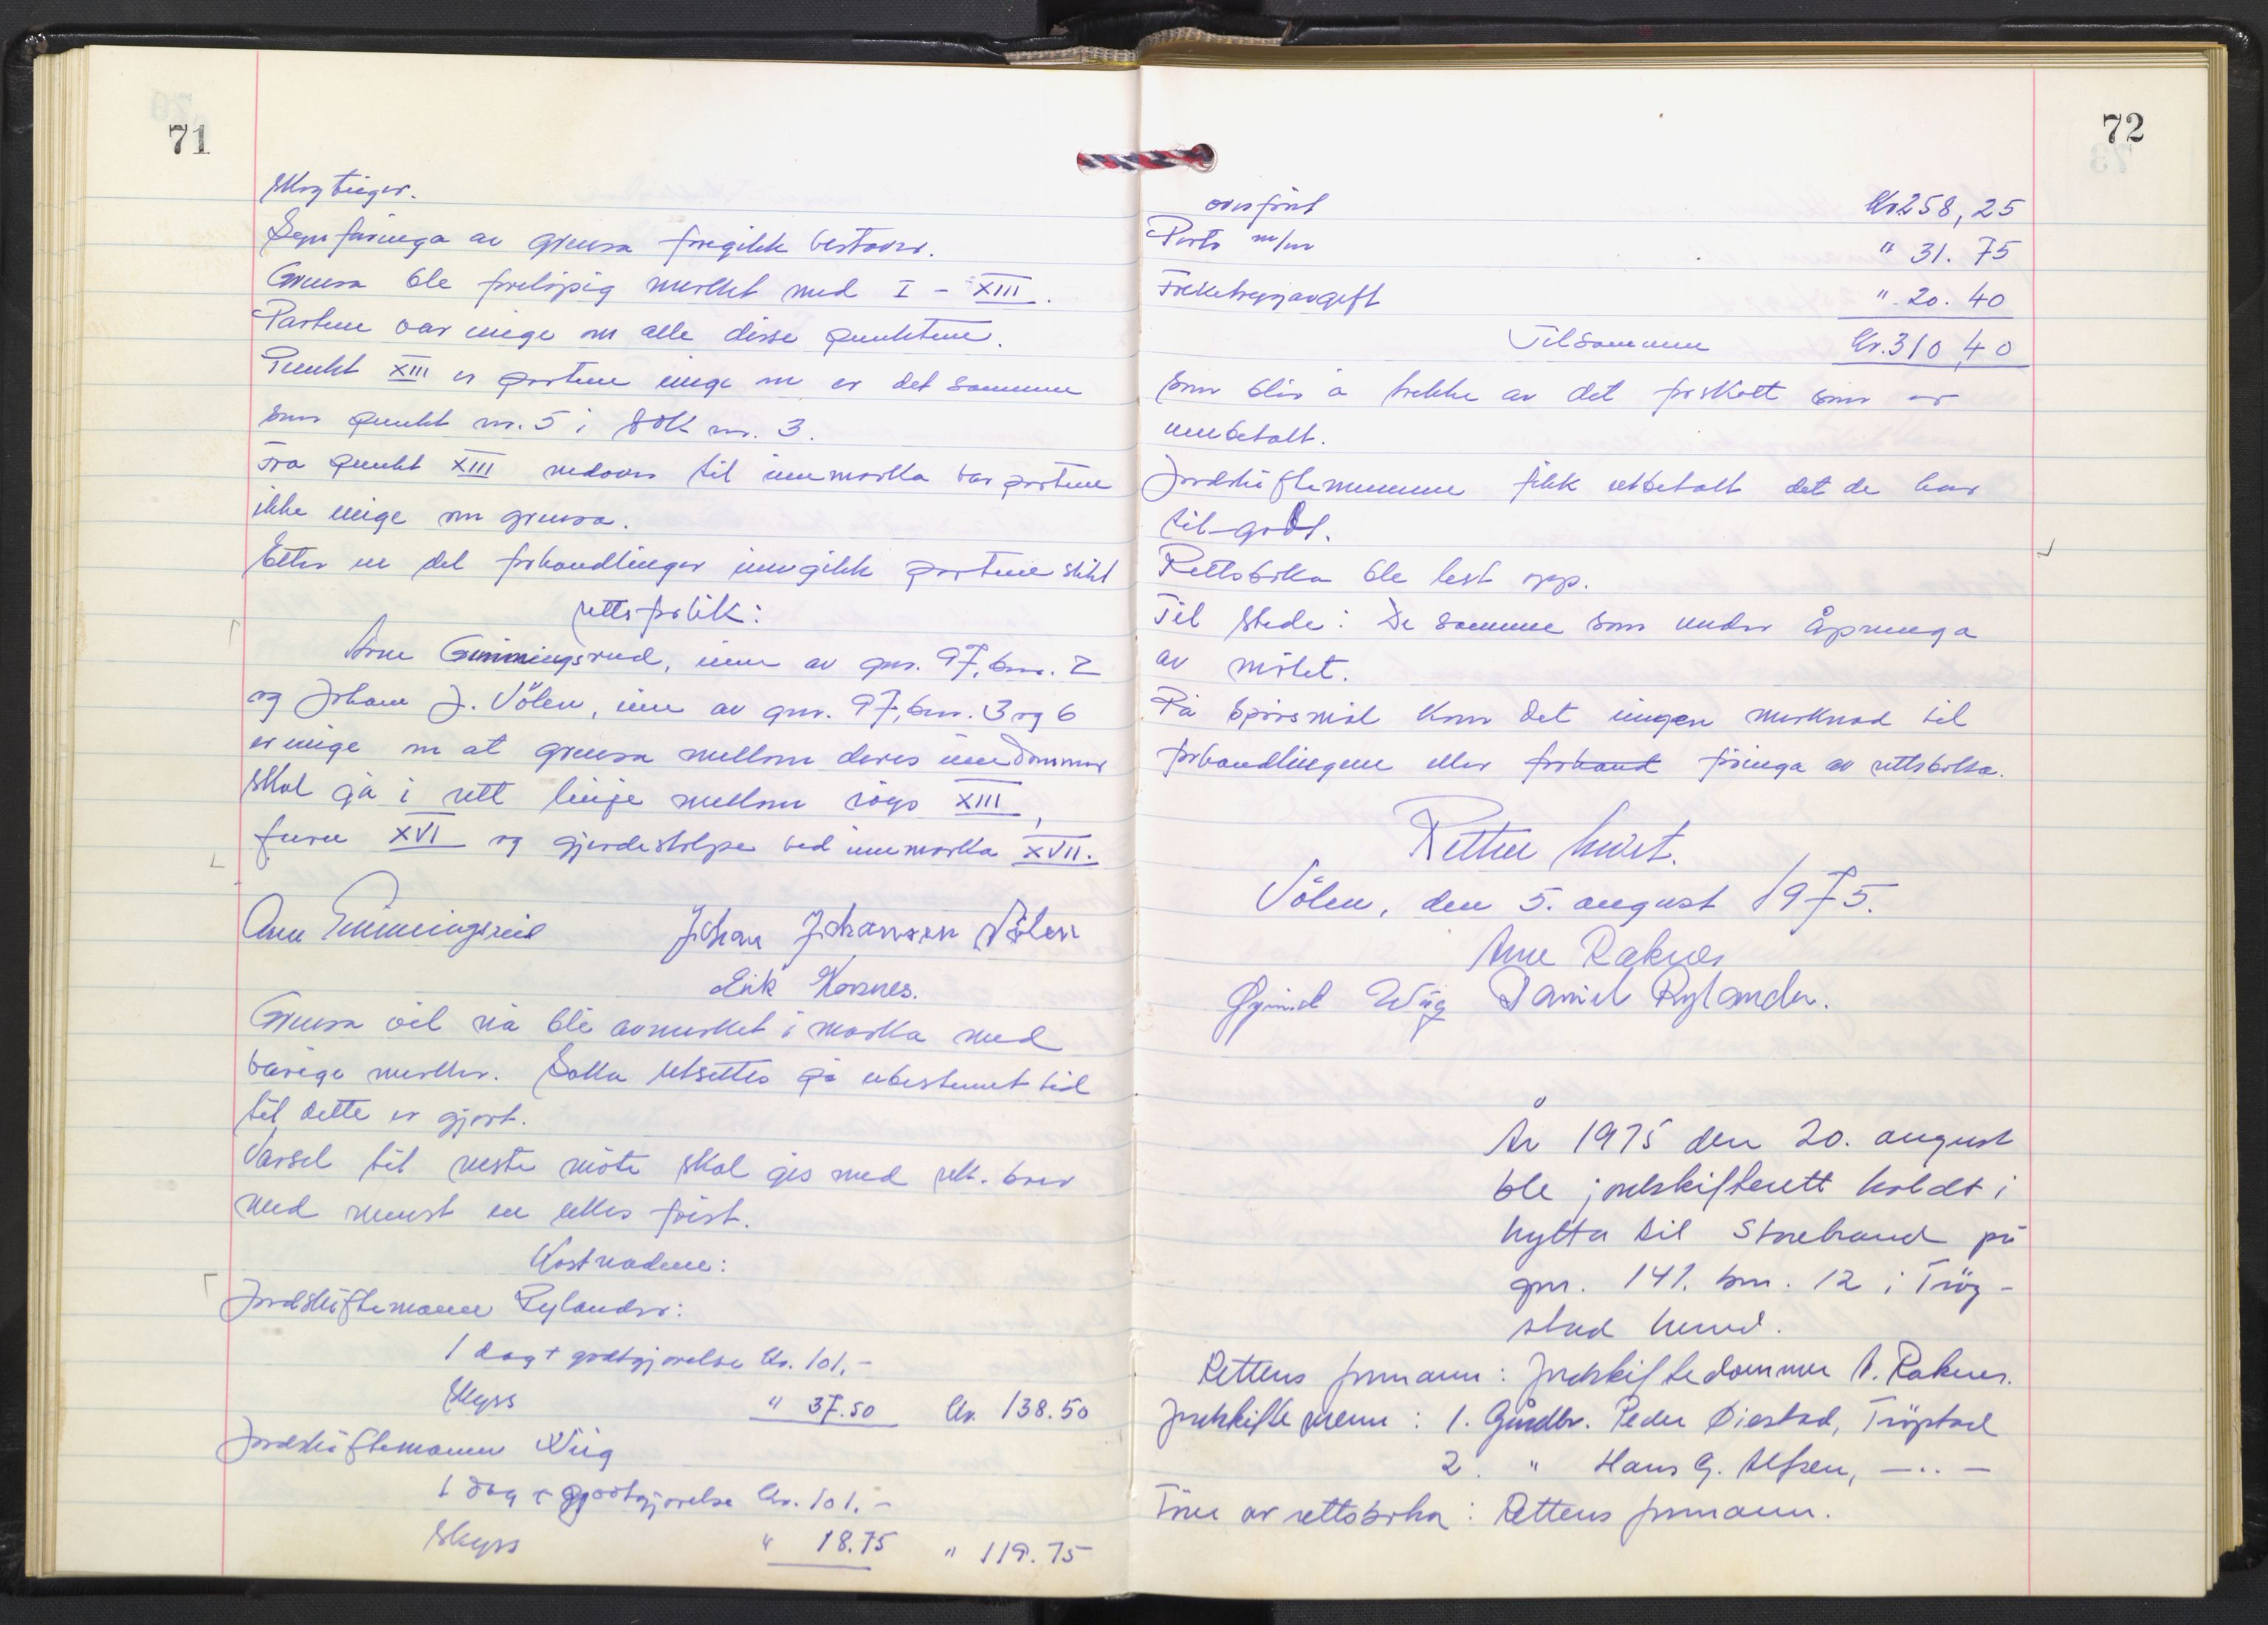 71
skogteiger.
Synfaringa av grensa foregikk vestover.
Grensa ble foreløpig merket med I – XIII.
Partene var enige om alle disse punktene.
Punkt XIII er partene enige om er det samme
som punkt nr. 5 i dok nr. 3.
Fra punkt XIII nedover til innmarka var partene
ikke enige om grensa.
Etter en del forhandlinger inngikk partene slikt
rettsforlik:
Arne Gimmingsrud, eier av gnr. 97, bnr. 2
og Johan J. Vølen, eier av gnr. 97, bnr. 3 og 6
er enige om at grensa mellom deres eiendommer
skal gå i rett linje mellom røys XIII,
furu XVI og gjerdestolpe ved innmarka XVII.
Arne Gimmingsrud Johan Johansen Vølen
Eirik Kornes.
Grensa vil nå bli avmerket i marka med
varige merker. Saka utsettes på ubestemt tid
til dette er gjort.
Varsel til neste møte skal gis med rek. brev
med minst en ukes frist.
Kostnadene:
Jordskiftemann Rylander:
1 dag+ godtgjørelse kr. 101.-
Skyss " 37.50 kr. 138.50
Jordskiftemann Wiig
1 dag + godtgjørelse kr. 101.-
Skyss " 18.75 " 119.75
72
overført kr 258,25
Porto m/m " 31.75
Folketrygdavgift " 20.40
Tilsammen kr. 310,40
som blir å trekke av det forskott som er
innbetalt.
Jordskiftemennene fikk utbetalt det de har
til-godt.
Rettsboka ble lest opp.
Til stede: De samme som under åpninga
av møtet.
På spørsmål kom det ingen merknad til
forhandlingene eller forhand føringa av rettsboka.
Retten hevet.
Vølen, den 5. august 1975.
Arne Raknes
Øyvind Wiig Daniel Rylander.
År 1975 den 20. august
ble jordskifterett holdt i
hytta til Storebrand på
gnr. 141. bnr. 12 i Trøg-
stad herred.
Rettens formann: Jordskiftedommer A. Raknes.
Jordskiftemenn: 1. Gårdbr. Peder Øiestad, Trøgstad
2. " Hans G. Alfsen, —..—
Fører av rettsboka: Rettens formann.